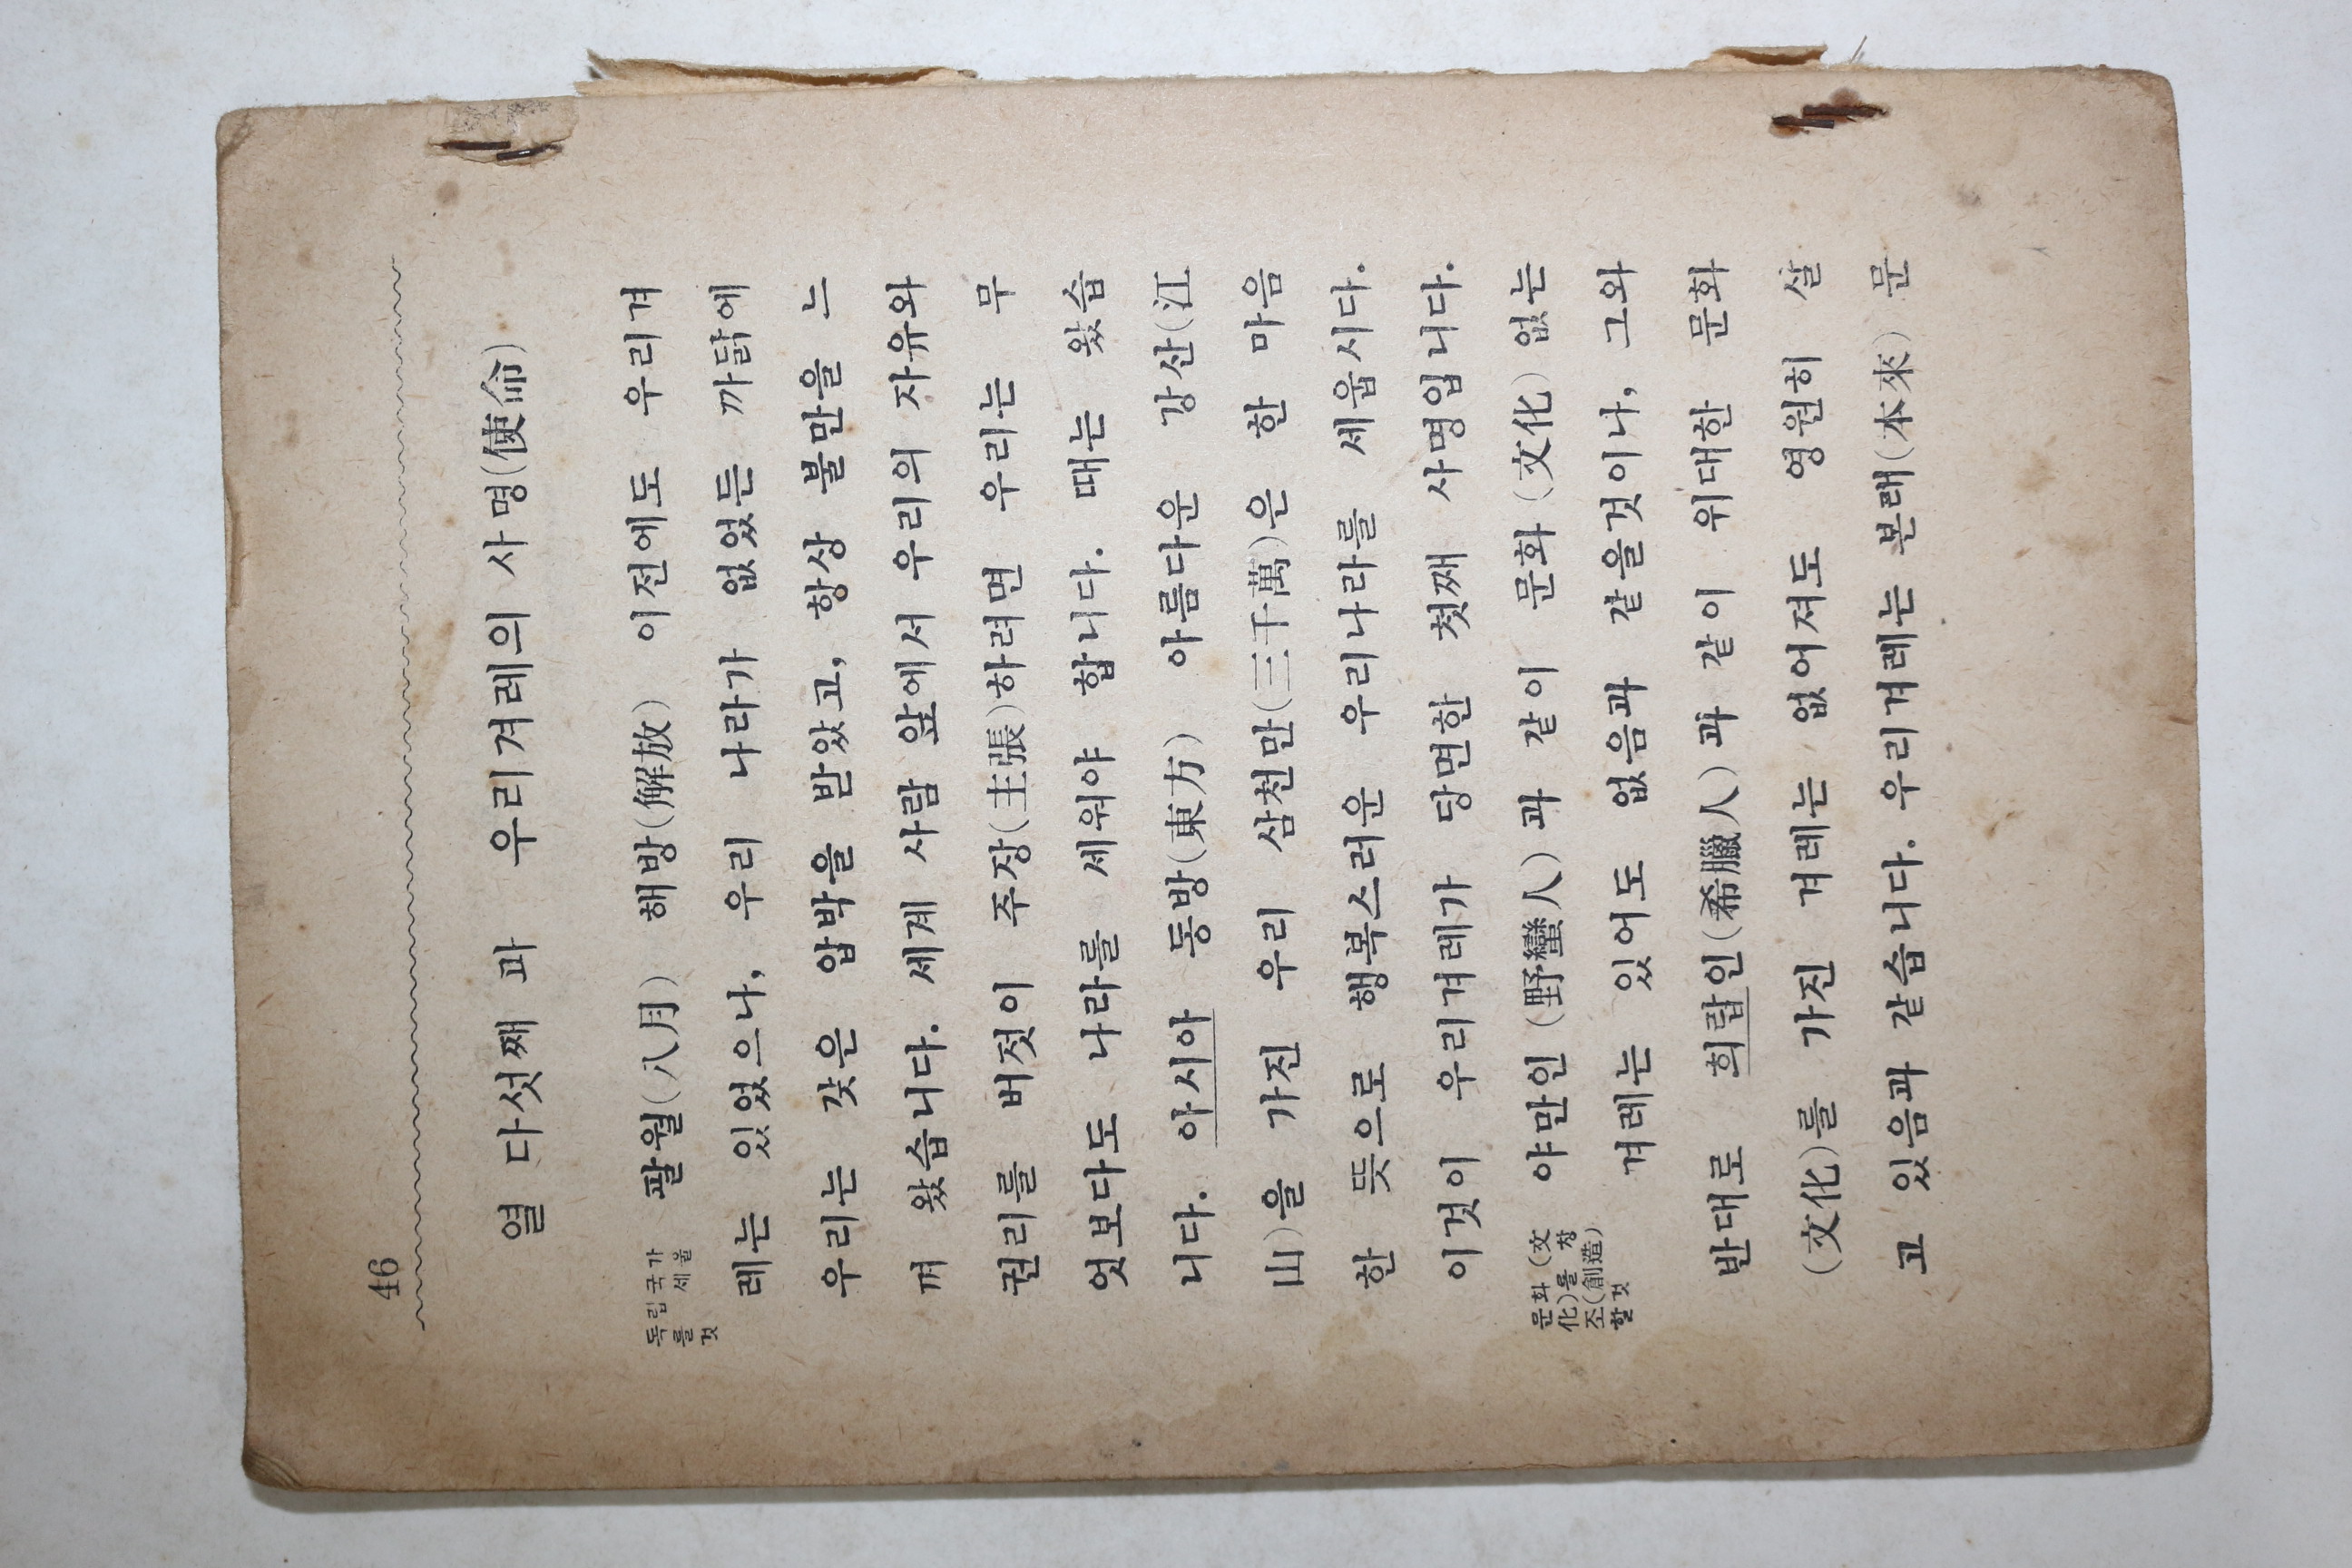 46
열 다섯째 과 우리겨레의 사명(使命)
독립국가
를 세울
것
팔월(八月) 해방(解放) 이전에도 우리겨
레는 있었으나, 우리 나라가 없었든 까닭에
우리는 갖은 압박을 받았고, 항상 불만을 느
껴 왔습니다. 세계 사람 앞에서 우리의 자유와
권리를 버젓이 주장(主張)하려면 우리는 무
엇보다도 나라를 세워야 합니다. 때는 왔습
니다. 아시아 동방(東方) 아름다운 강산(江
山)을 가진 우리 삼천만(三千萬)은 한 마음
한 뜻으로 행복스러운 우리나라를 세웁시다.
이것이 우리겨레가 당면한 첫째 사명입니다.
문화(文
化)를 창
조(創造)
할것
야만인(野蠻人)과 같이 문화(文化) 없는
겨레는 있어도 없음과 같을것이나, 그와
반대로 희랍인(希臘人)과 같이 위대한 문화
(文化)를 가진 겨레는 없어져도 영원히 살
고 있음과 같습니다. 우리겨레는 본래(本來) 문